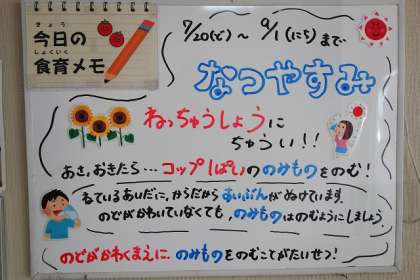 きょう
今日の
しょくいく
食育メモ
7/20(ど)〜9/1(にち)まで
なつやすみ
ねっちゅうしょうに
ちゅうい!!
あさ,おきたら…コップ1ぱいののみものをのむ!
ねているあいだに,からだからすいぶんがぬけています.
のどがかわいていなくても,のみものはのむようにしましょう.
のどがかわくまえに,のみものをのむことがたいせつ!